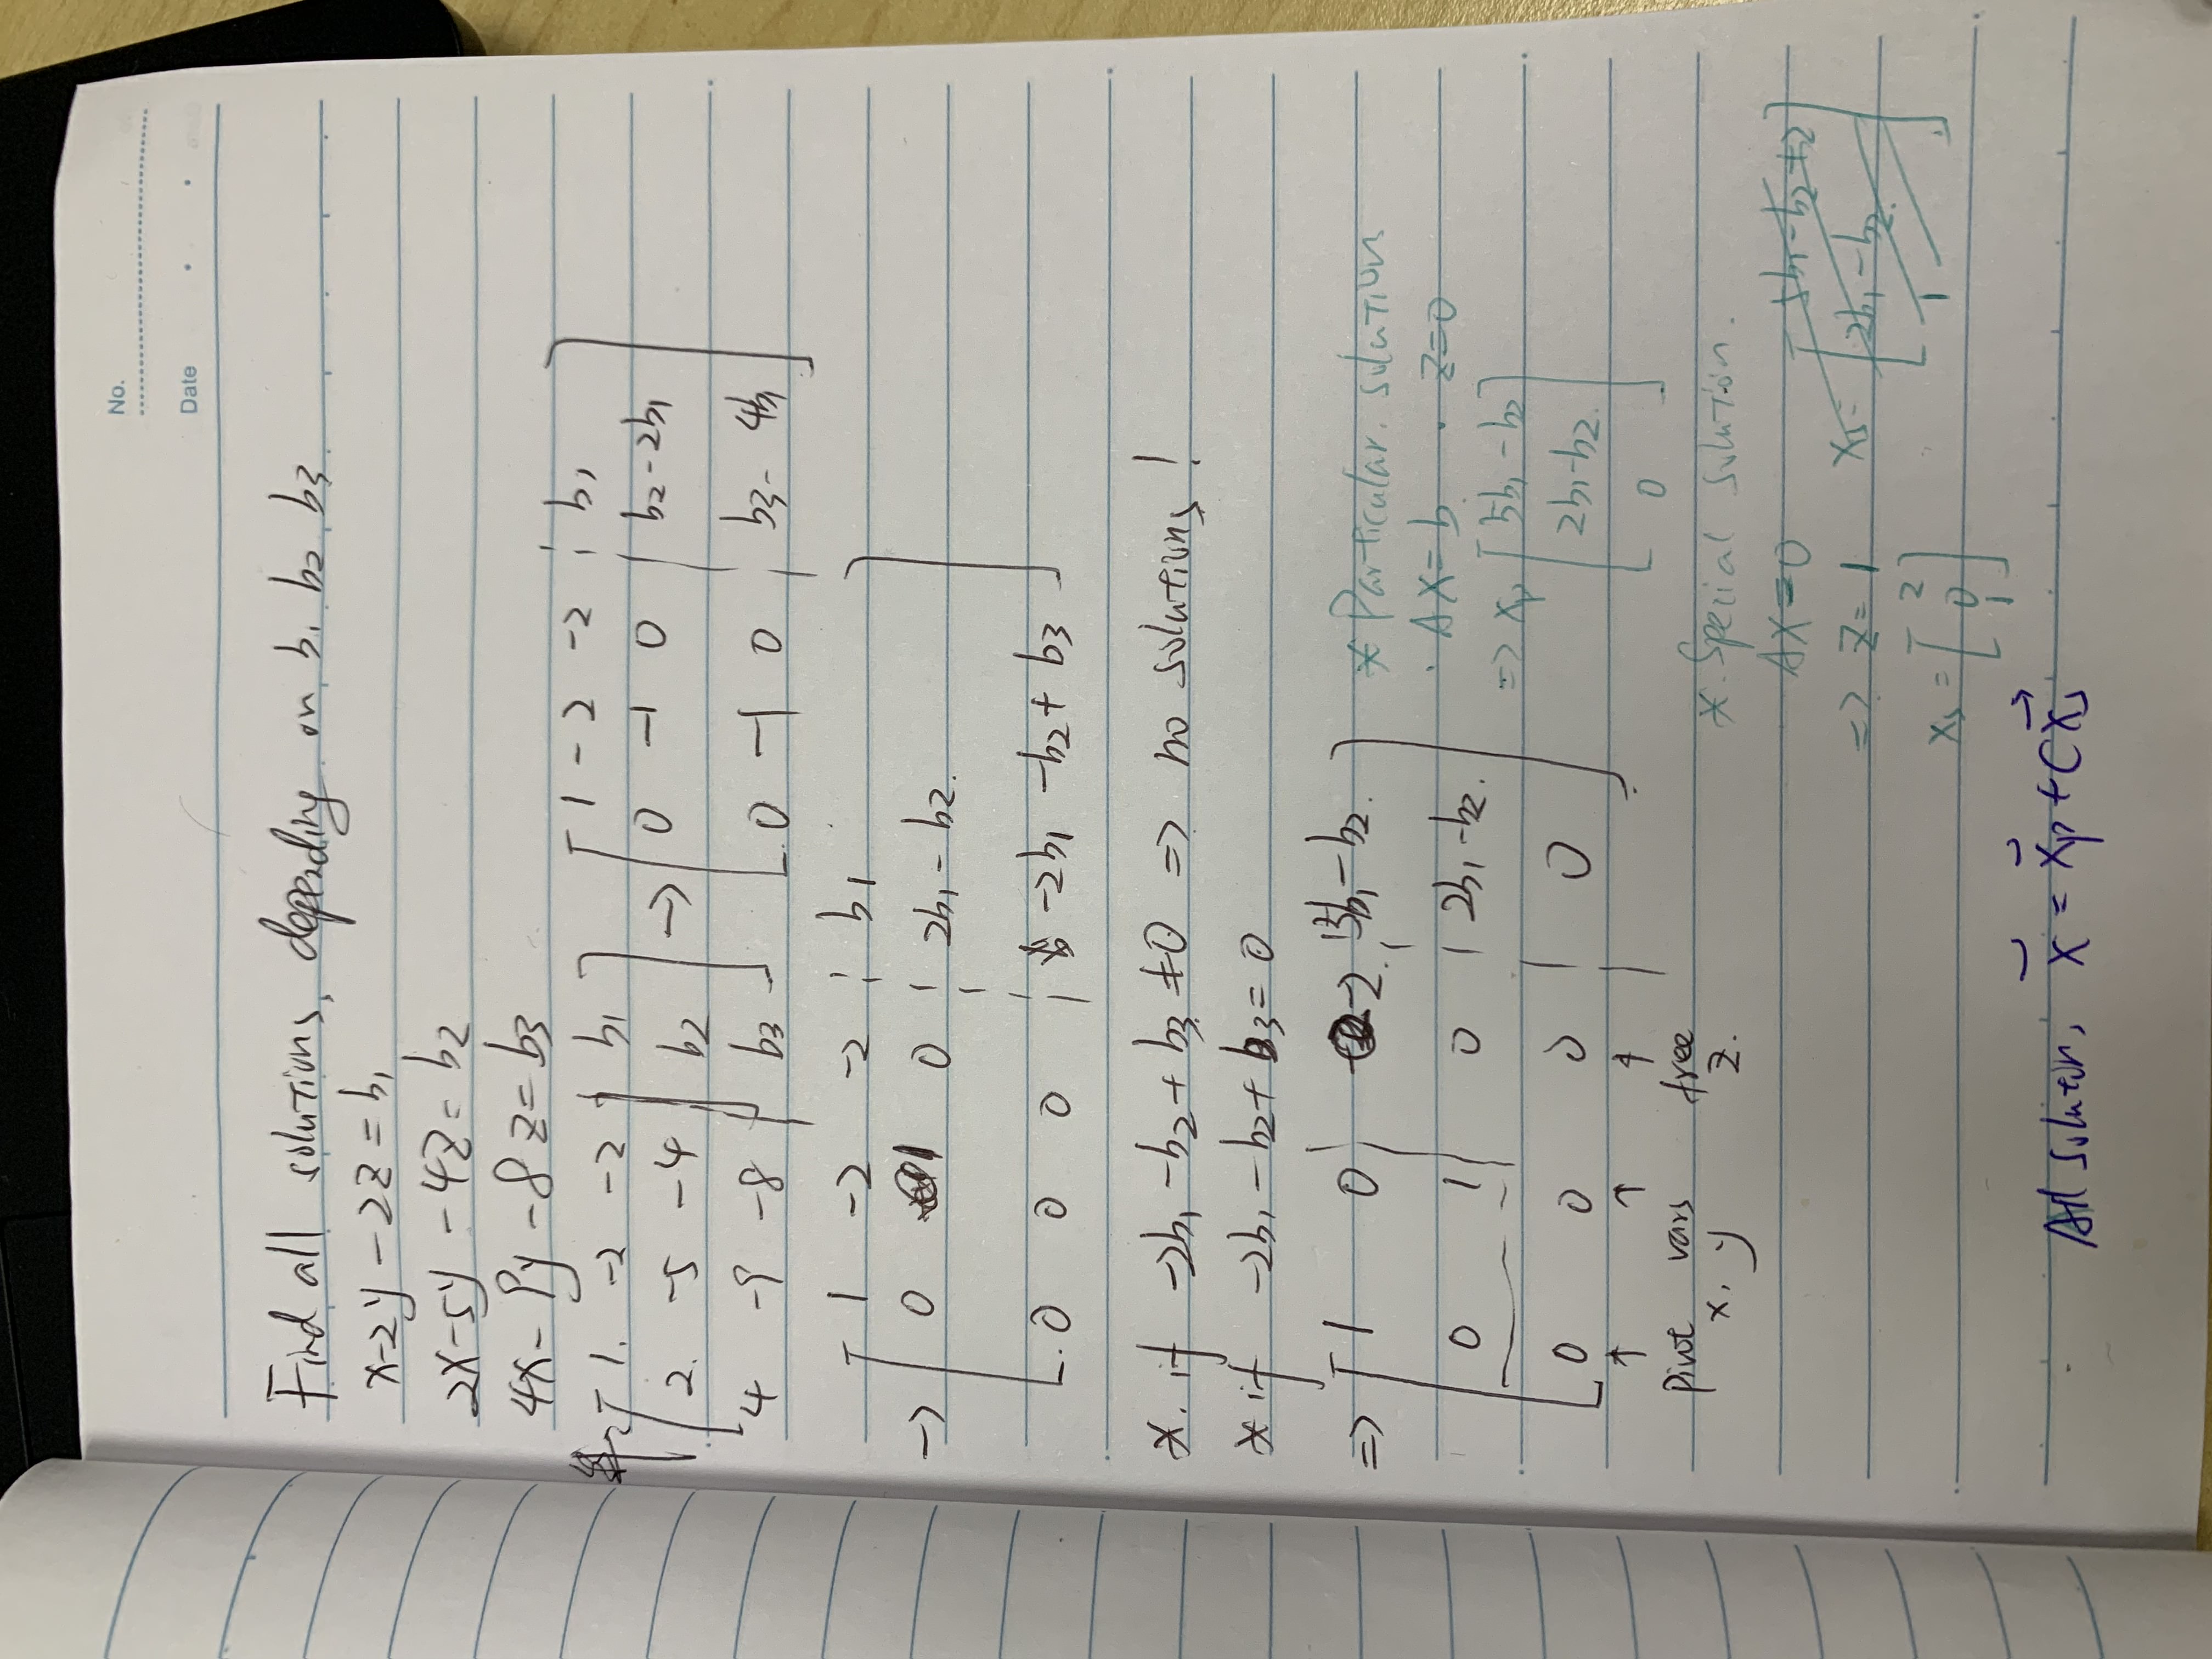 No.
Date
Find all solutions, depending on b1 b2 b3
x-2y-2z=b1
2x-5y-4z=b2
4x-9y-8z=b3
[1. -2 -2 | b1] → [1 -2 -2 | b1]
[2. -5 -4 | b2] [0 -1 0 | b2-2b1]
[4 -9 -8 | b3] [0 -1 0 | b3-4b1]
→ [1 -2 -2 | b1]
[0 1 0 | 2b1-b2.]
[0 0 0 | -2b1-b2+b3]
*. if -2b1-b2+b3≠0 => no solutions!
* if -2b1-b2+b3=0
=> [1 0 -2 | 5b1-b2.]
[0 1 0 | 2b1-b2.]
[0 0 0 | 0]
↑ ↑ ↑
Pivot vars free
x, y z.
* Particular. solution
· AX=b · z=0
=> xp [5b1-b2
2b1-b2.
0]
*. Special solution.
AX=0
=> z=1 xs= [5b1-b2+2
2b1-b2.
1]
xs = [2
0
1]
All solution, x = xp + Cxs